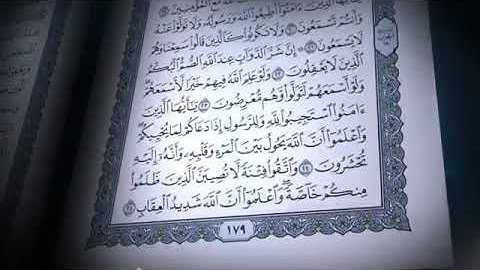 ءَامَنُوٓا۟ أَطِيعُوا۟ ٱللَّهَ وَرَسُولَهُۥ وَلَا تَوَلَّوْا۟ عَنْهُ
وَأَنتُمْ تَسْمَعُونَ ٢٠ وَلَا تَكُونُوا۟ كَٱلَّذِينَ قَالُوا۟ سَمِعْنَا وَهُمْ
لَا يَسْمَعُونَ ٢١ إِنَّ شَرَّ ٱلدَّوَآبِّ عِندَ ٱللَّهِ ٱلصُّمُّ ٱلْبُكْمُ
ٱلَّذِينَ لَا يَعْقِلُونَ ٢٢ وَلَوْ عَلِمَ ٱللَّهُ فِيهِمْ خَيْرًا لَّأَسْمَعَهُمْ
وَلَوْ أَسْمَعَهُمْ لَتَوَلَّوا۟ وَّهُم مُّعْرِضُونَ ٢٣ يَـٰٓأَيُّهَا ٱلَّذِينَ
ءَامَنُوا۟ ٱسْتَجِيبُوا۟ لِلَّهِ وَلِلرَّسُولِ إِذَا دَعَاكُمْ لِمَا يُحْيِيكُمْ
وَٱعْلَمُوٓا۟ أَنَّ ٱللَّهَ يَحُولُ بَيْنَ ٱلْمَرْءِ وَقَلْبِهِۦ وَأَنَّهُۥٓ إِلَيْهِ
تُحْشَرُونَ ٢٤ وَٱتَّقُوا۟ فِتْنَةً لَّا تُصِيبَنَّ ٱلَّذِينَ ظَلَمُوا۟
مِنكُمْ خَآصَّةً وَٱعْلَمُوٓا۟ أَنَّ ٱللَّهَ شَدِيدُ ٱلْعِقَابِ ٢٥
١٧٩